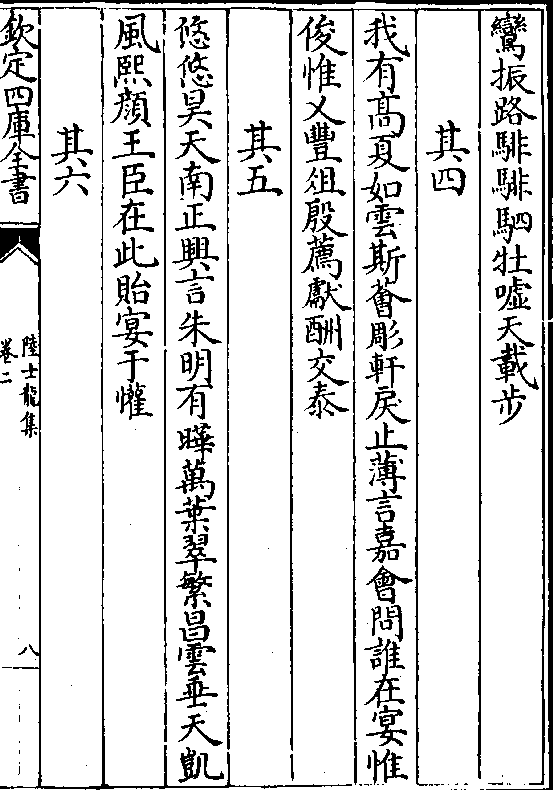 鸞振路騑騑駟牡噓天載步
其四
我有高夏如雲斯薈彫軒戾止薄言嘉會問誰在宴惟
俊惟乂豐俎殷薦獻酬交泰
其五
悠悠昊天南正興言朱明有曄萬葉翠繁昌雲垂天凱
風熙顏王臣在此貽宴于懽
其六
欽定四庫全書
陸士龍集
卷二
八